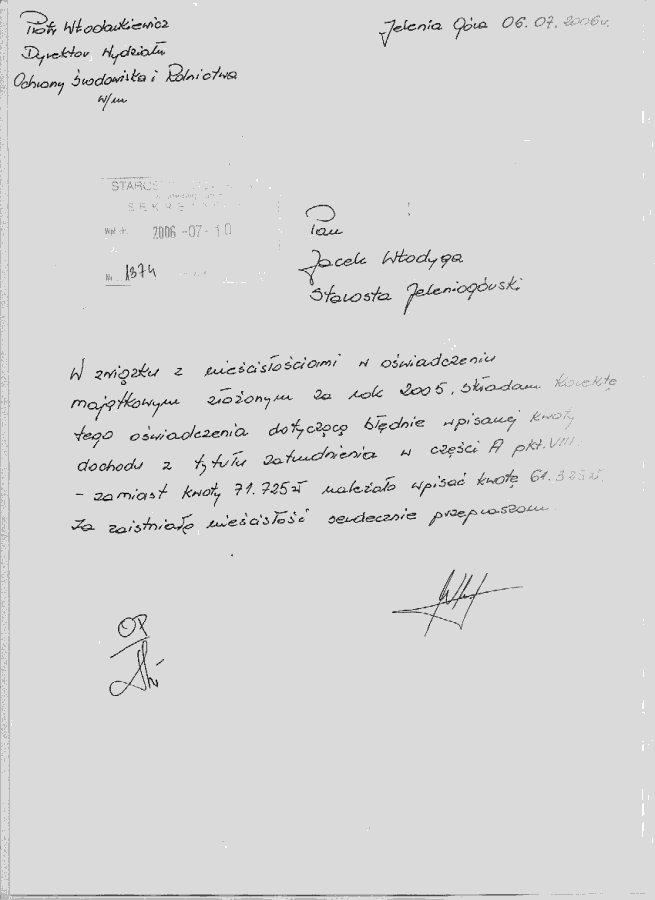 Piotr Włodarkiewicz
Jelenia Góra 06.07.2006r.
Dyrektor Wydziału
Ochrony Środowiska i Rolnictwa
w/m
STAROS
SEKRE
Wpł. dn. 2006-07-10
Nr 1374
Pan
Jacek Włodyga
Starosta Jeleniogórski
W związku z nieścisłościami w oświadczeniu
majątkowym złożonym za rok 2005, składam korektę
tego oświadczenia dotyczącą błędnie wpisanej kwoty
dochodu z tytułu zatrudnienia w części A pkt. VIII.
- zamiast kwoty 71.725 zł należało wpisać kwotę 61.325 zł.
Za zaistniałą nieścisłość serdecznie przepraszam.
OP